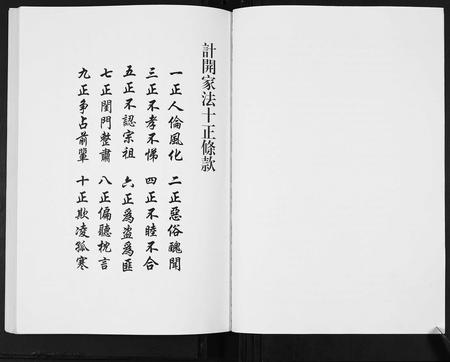 計開家法十正條款
一正人倫風化 二正惡俗醜聞
三正不孝不悌 四正不睦不合
五正不認宗祖 六正為盜為匪
七正閨門整肅 八正偏聽枕言
九正爭占前輩 十正欺凌孤寒